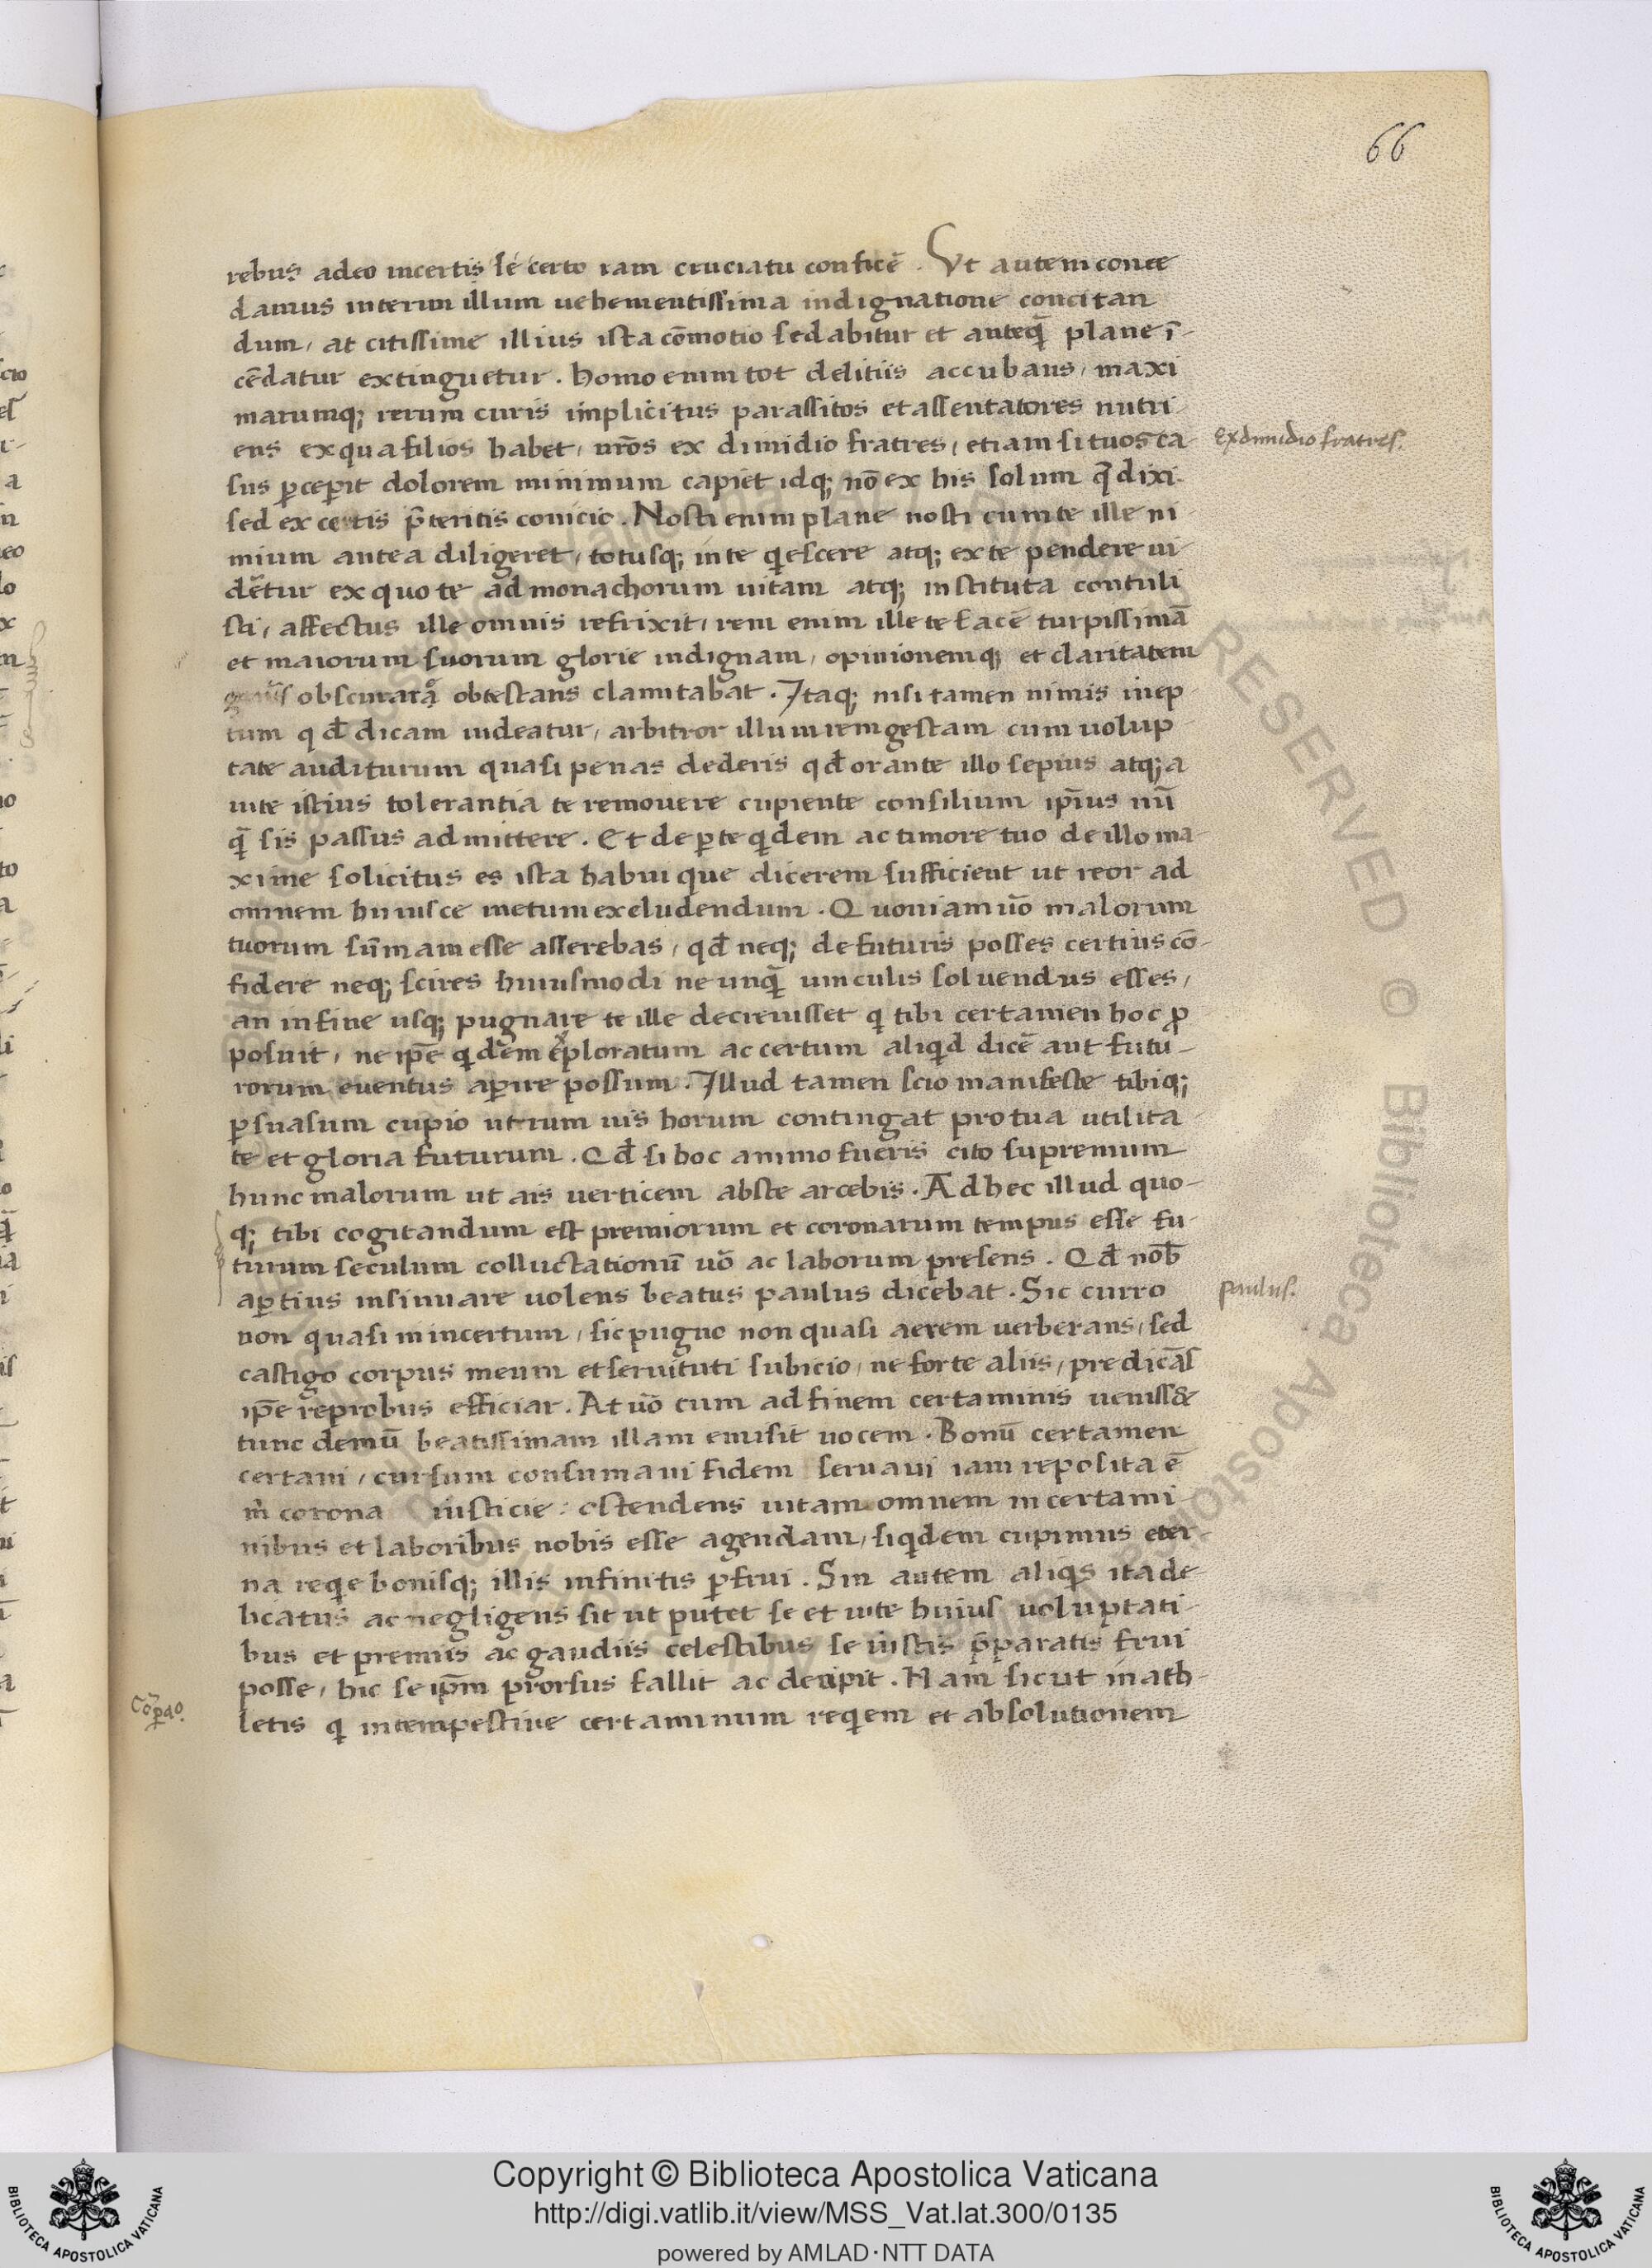 66
rebus adeo incertis se certo iam cruciatu conficē . Vt autem conce
damus interim illum uehementissima indignatione concitan
dum, at citissime illius ista cōmotio sedabitur et anteq̄ plane ī-
cēdatur extinguetur . homo enim tot delitiis accubans, maxi
marumq; rerum curis implicitus parassitos et assentatores nutri
ens ex qua filios habet, nr̄os ex dimidio fratres, etiam si tuos ca
ex dimidio fratres.
sus ꝑceꝑit dolorem minimum capiet idq; nō ex his solum q̄ dixi.
sed ex certis p̄teritis conicio . Nosti enim plane nosti cum te ille ni
mium antea diligeret, totusq; in te qescere atq; ex te pendere ui
dētur ex quo te ad monachorum uitam atq; instituta contuli
sti, affectus ille omnis refrixit, rem enim ille te facē turpissimā
et maiorum suorum glorie indignam, opinionemq; et claritatem
obscuratā obtestans clamitabat . Itaq; nisi tamen nimis inep
tum qđ dicam uideatur, arbitror illum rem gestam cum uolup
tate auditurum quasi penas dederis qđ orante illo sepius atq; a
uite istius tolerantia te remouere cupiente consilium ip̄ius nū
q̄ sis passus admittere . Et de ꝑte qdem ac timore tuo de illo ma
xime solicitus es ista habui que dicerem sufficient ut reor ad
omnem huiusce metum excludendum . Quoniam uō malorum
tuorum sūmam esse asserebas, qđ neq; de futuris posses certius cō-
fidere neq; scires huiusmodi ne unq̄ uinculis soluendus esses,
an in fine usq; pugnare te ille decreuisset q tibi certamen hoc ꝓ
posuit, ne ip̄e qdem exploratum ac certum aliqd dicē aut futu-
rorum euentus aꝑire possum . Illud tamen scio manifeste tibiq;
ꝑsuasum cupio utrum uis horum contingat pro tua utilita
te et gloria futurum . Qđ si hoc animo fueris cito supremum
hunc malorum ut ais uerticem abste arcebis . Ad hec illud quo-
q; tibi cogitandum est premiorum et coronarum tempus esse fu
turum seculum colluctationū uō ac laborum presens . Qđ nob̄
aꝑtius insinuare uolens beatus paulus dicebat . Sic curro
paulus.
non quasi in incertum, sic pugno non quasi aerem uerberans, sed
castigo corpus meum et seruituti subicio, ne forte aliis, predicās
ip̄e reprobus efficiar . At uō cum ad finem certaminis ueniss&
tunc demū beatissimam illam emisit uocem . Bonū certamen
certaui, cursum consumaui fidem seruaui iam reposita ē
m̄ corona iusticie : ostendens uitam omnem in certami
nibus et laboribus nobis esse agendam, siqdem cupimus eter
na reqe bonisq; illis infinitis ꝑfrui . Sin autem aliqs ita de
licatus ac negligens sit ut putet se et uite huius uoluptati
bus et premiis ac gaudiis celestibus se iustis p̄paratis frui
posse, hic se ip̄m prorsus fallit ac decipit . Nam sicut in ath-
Cōꝑao.
letis q intempestiue certaminum reqem et absolutionem
RESERVED © Biblioteca Apostolica
Copyright © Biblioteca Apostolica Vaticana
http://digi.vatlib.it/view/MSS_Vat.lat.300/0135
powered by AMLAD·NTT DATA
BIBLIOTECA APOSTOLICA VATICANA
BIBLIOTECA APOSTOLICA VATICANA